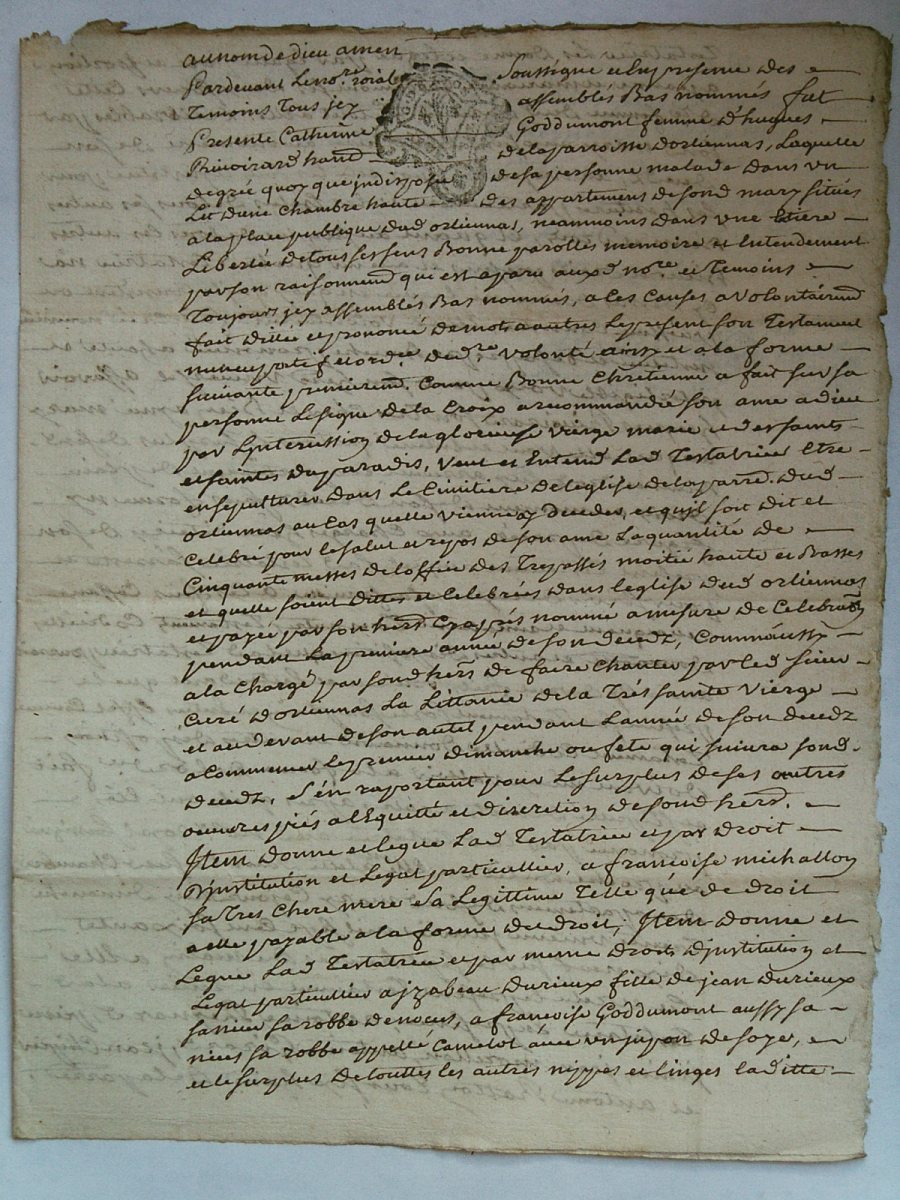 au nom de dieu amen
Pardevant Le no.re roial soussigné et En presence des
Temoins Tous jcy assemblés Bas nommés fut
Presente Catherine Goddumont femme d'hugues
de la parroisse d'orliennas, Laquelle
degrée quoy que jndisposée de sa personne malade dans un
Lit dune Chambre haute des appartemens de sond mary situés
a la place publique dud orliennas, neammoins dans une Entiere
Libertée de tous ses sens Bonne parolles memoire et Entendement
par son raisonnemd qui est aparu auxd no.re et Temoins
Toujours jcy assemblés Bas nommés, a les Causes a volontairemd
fait dittée et prononcé de mots a autres Le present son Testament
nuncupatif et ord.re de d.re volonté ainsy et a la forme
suivante premieremd. Comme Bonne Chretienne a fait sur sa
personne Le signe de la Croix a recommandé son ame a dieu
par Lyntercession de la glorieuse vierge marie et des saints
et saintes du paradis, veut et Entend Lad Testatrice Etre
ensepulturée dans Le Cimitiere de leglise de la parr. dud
orliennas au Cas quelle vienne a y deceder, et qu'il soit dit et
Celebré pour le salut et repos de son ame La quantité de
Cinquante messes de loffice des Trepassés moitié haute et Basses
et quelle soient dittes et Celebrées dans leglise dud orliennas
et payée par son herd Cy aprés nommé a mesure de Celebraon
pendant La premiere année de son decedz, Comm'aussy
a la Chargé par sond hers de faire Chanter par led sieur
Curé d'orliennas La Littanie de la Trés sainte vierge
et au devant de son autel pendant Lannée de son decedz
a Commencer Le premier dimanche ou fete qui suivra sond.
decedz, s'en raportant pour Le surplus de ses autres
oeuvres piés a l'Equitté et discretion de sond herd.
Jtem donne et legue Lad Testatrice et par droit
D'jnstitution et Legat particullier, a francoise michallon
sa Tres Chere mere sa Legittime Telle que de droit
a elle payable a la forme du droit, Jtem donne et
Legue Lad Testatrice et par meme droits d'jnstitution et
Legat particullier a jzabeau durieux fille de jean durieux
sa niece sa robbe de noces, a francoise Goddumont aussy sa
niece sa robbe appellé Camelot avec un jupon de soye,
et le surplus de touttes les autres nippes et linges laditte